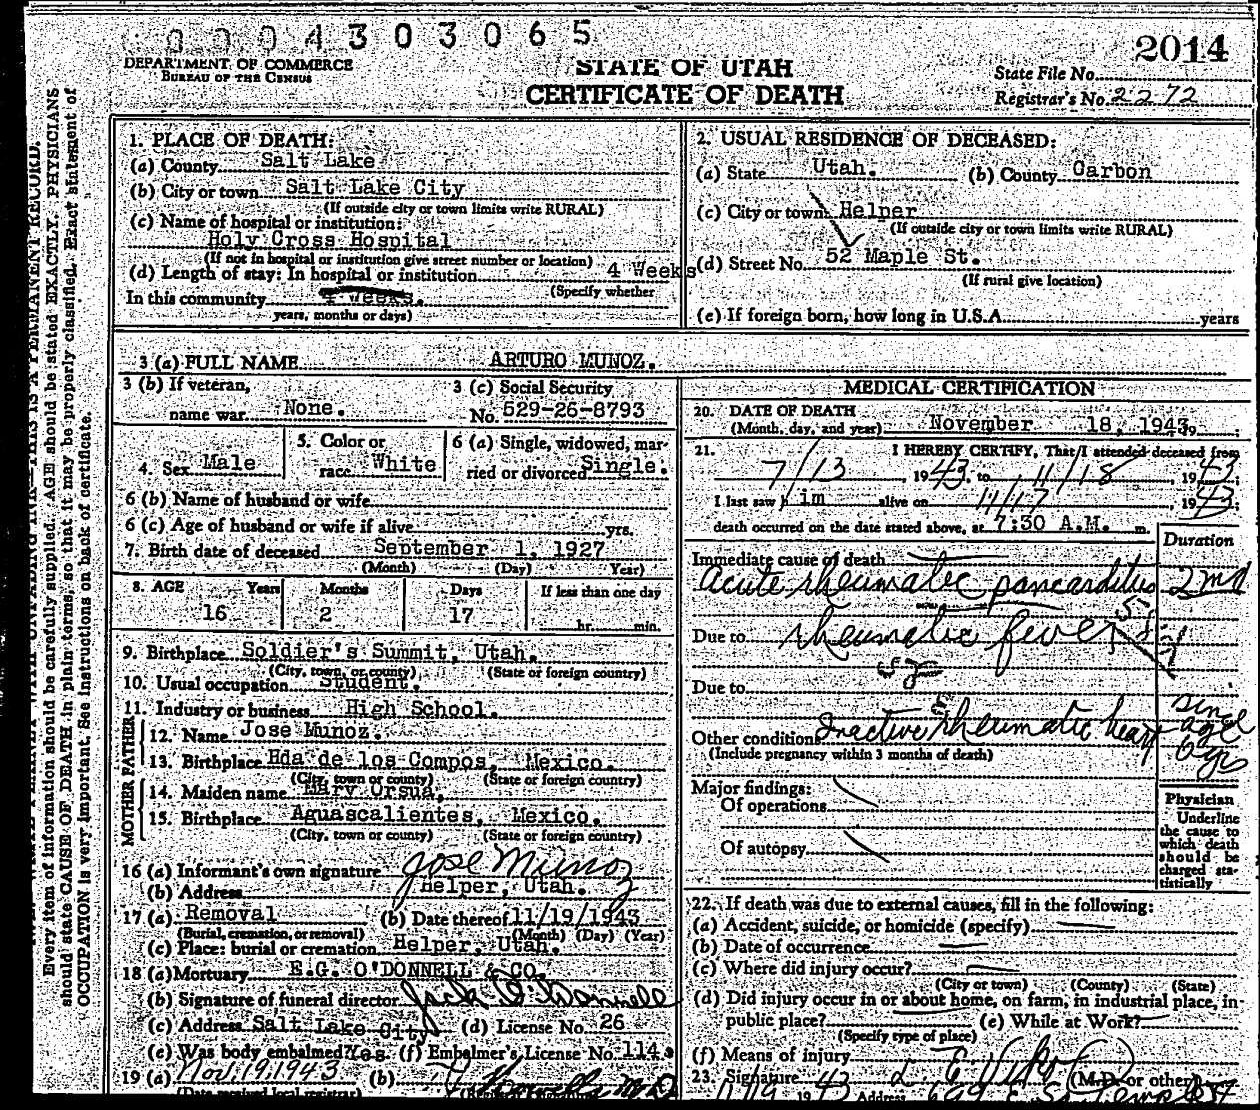 0004303065
2014
DEPARTMENT OF COMMERCE
BUREAU OF THE CENSUS
STATE OF UTAH
CERTIFICATE OF DEATH
State File No.
Registrar's No. 2272
Every item of information should be carefully supplied. AGE should be stated EXACTLY. PHYSICIANS
should state CAUSE OF DEATH in plain terms, so that it may be properly classified. Exact statement of
OCCUPATION is very important. See instructions on back of certificate.
1. PLACE OF DEATH:
(a) County Salt Lake
(b) City or town Salt Lake City
(If outside city or town limits write RURAL)
(c) Name of hospital or institution:
Holy Cross Hospital
(If not in hospital or institution give street number or location)
(d) Length of stay: In hospital or institution 4 Weeks
(Specify whether
In this community 4 weeks.
years, months or days)
2. USUAL RESIDENCE OF DECEASED:
(a) State Utah. (b) County Carbon
(c) City or town Helper
(If outside city or town limits write RURAL)
(d) Street No. 52 Maple St.
(If rural give location)
(e) If foreign born, how long in U.S.A. years
3 (a) FULL NAME ARTURO MUNOZ.
3 (b) If veteran,
name war None.
3 (c) Social Security
No. 529-26-8793
4. Sex Male
5. Color or
race White
6 (a) Single, widowed, mar-
ried or divorced Single.
6 (b) Name of husband or wife
6 (c) Age of husband or wife if alive yrs.
7. Birth date of deceased September 1, 1927
(Month) (Day) Year)
8. AGE Years Months Days If less than one day
16 2 17 hr. min.
9. Birthplace Soldier's Summit, Utah.
(City, town, or county) (State or foreign country)
10. Usual occupation Student.
11. Industry or business High School.
FATHER
12. Name Jose Munoz.
13. Birthplace Hda de los Compos, Mexico.
(City, town or county) (State or foreign country)
MOTHER
14. Maiden name Mary Orsua,
15. Birthplace Aguascalientes, Mexico.
(City, town or county) (State or foreign country)
16 (a) Informant's own signature Jose Munoz
(b) Address Helper, Utah.
17 (a) Removal (b) Date thereof 11/19/1943
(Burial, cremation, or removal) (Month) (Day) (Year)
(c) Place: burial or cremation Helper, Utah.
18 (a) Mortuary E.G. O'DONNELL & CO.
(b) Signature of funeral director Jack O'Donnell
(c) Address Salt Lake City (d) License No. 26
(e) Was body embalmed? Yes. (f) Embalmer's License No. 114.
19 (a) Nov. 19, 1943 (b) M.D.
(Date received local registrar)
MEDICAL CERTIFICATION
20. DATE OF DEATH
(Month, day, and year) November 18, 1943, 19 ;
21. I HEREBY CERTIFY, That I attended deceased from
7/13, 1943, to 11/18, 1943;
I last saw him alive on 11/17, 1943;
death occurred on the date stated above, at 7:30 A.M. m.
Duration
Immediate cause of death
Acute rheumatic pancarditis
Due to rheumatic fever
Due to
Other conditions Inactive rheumatic heart since age 6 yrs
(Include pregnancy within 3 months of death)
Major findings:
Of operations
Of autopsy
Physician
Underline
the cause to
which death
should be
charged sta-
tistically
22. If death was due to external causes, fill in the following:
(a) Accident, suicide, or homicide (specify)
(b) Date of occurrence
(c) Where did injury occur?
(City or town) (County) (State)
(d) Did injury occur in or about home, on farm, in industrial place, in
public place? (e) While at Work?
(Specify type of place)
(f) Means of injury
23. Signature (M.D. or other)
19 43 Address